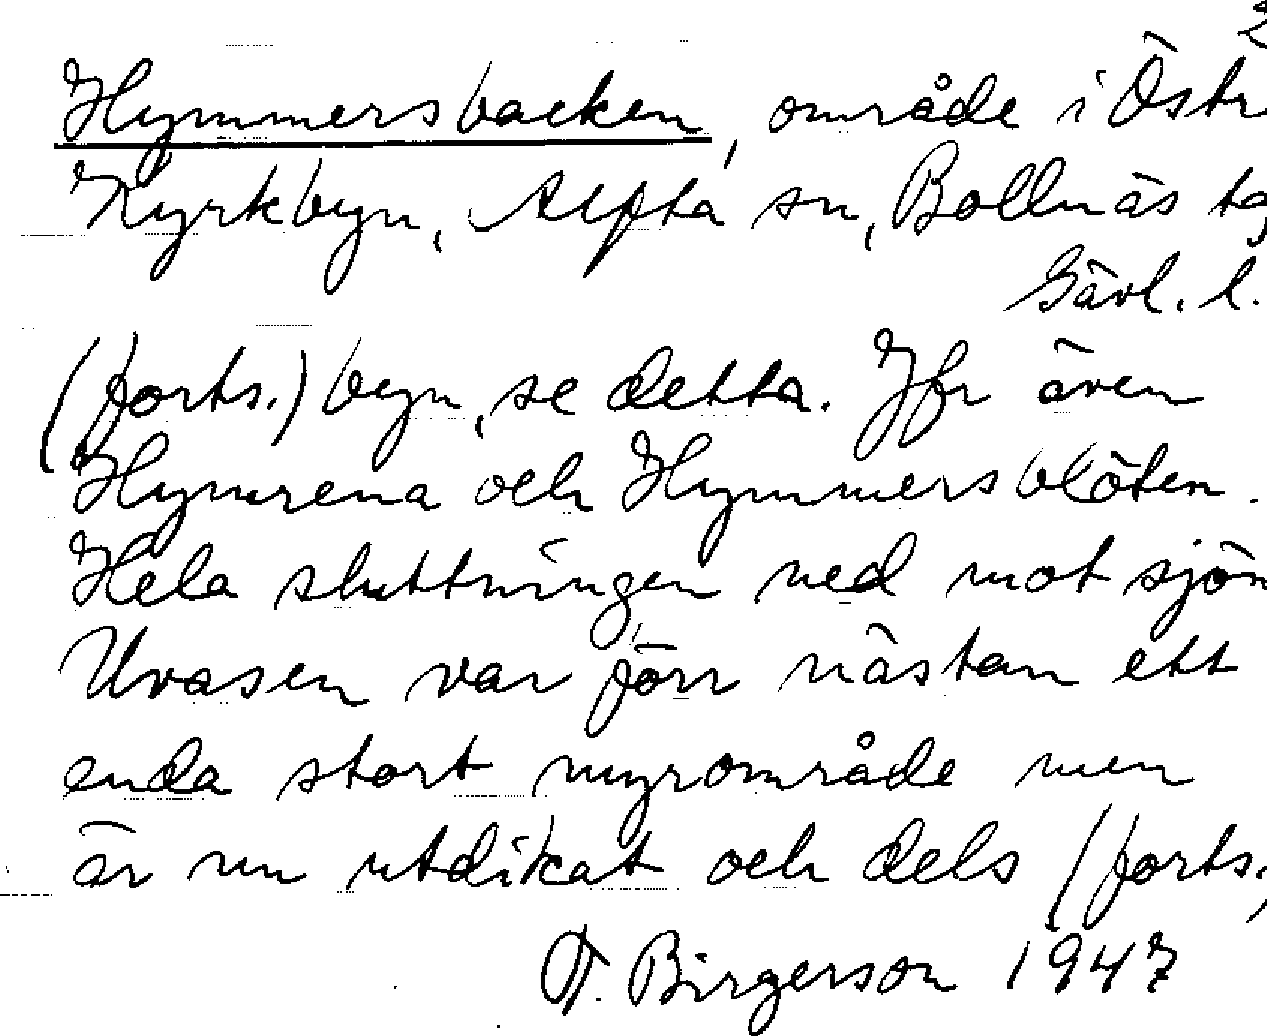 Hymmersbacken, område i Östr
Kyrkbyn, Alfta sn, Bollnäs tg
Gävl. l.
(forts.) byn, se detta. Jfr även
Hymrena och Hymmersblöten.
Hela sluttningen ned mot sjön
Uvasen var förr nästan ett
enda stort myrområde men
är nu utdikat och dels (forts.
T. Birgerson 1947